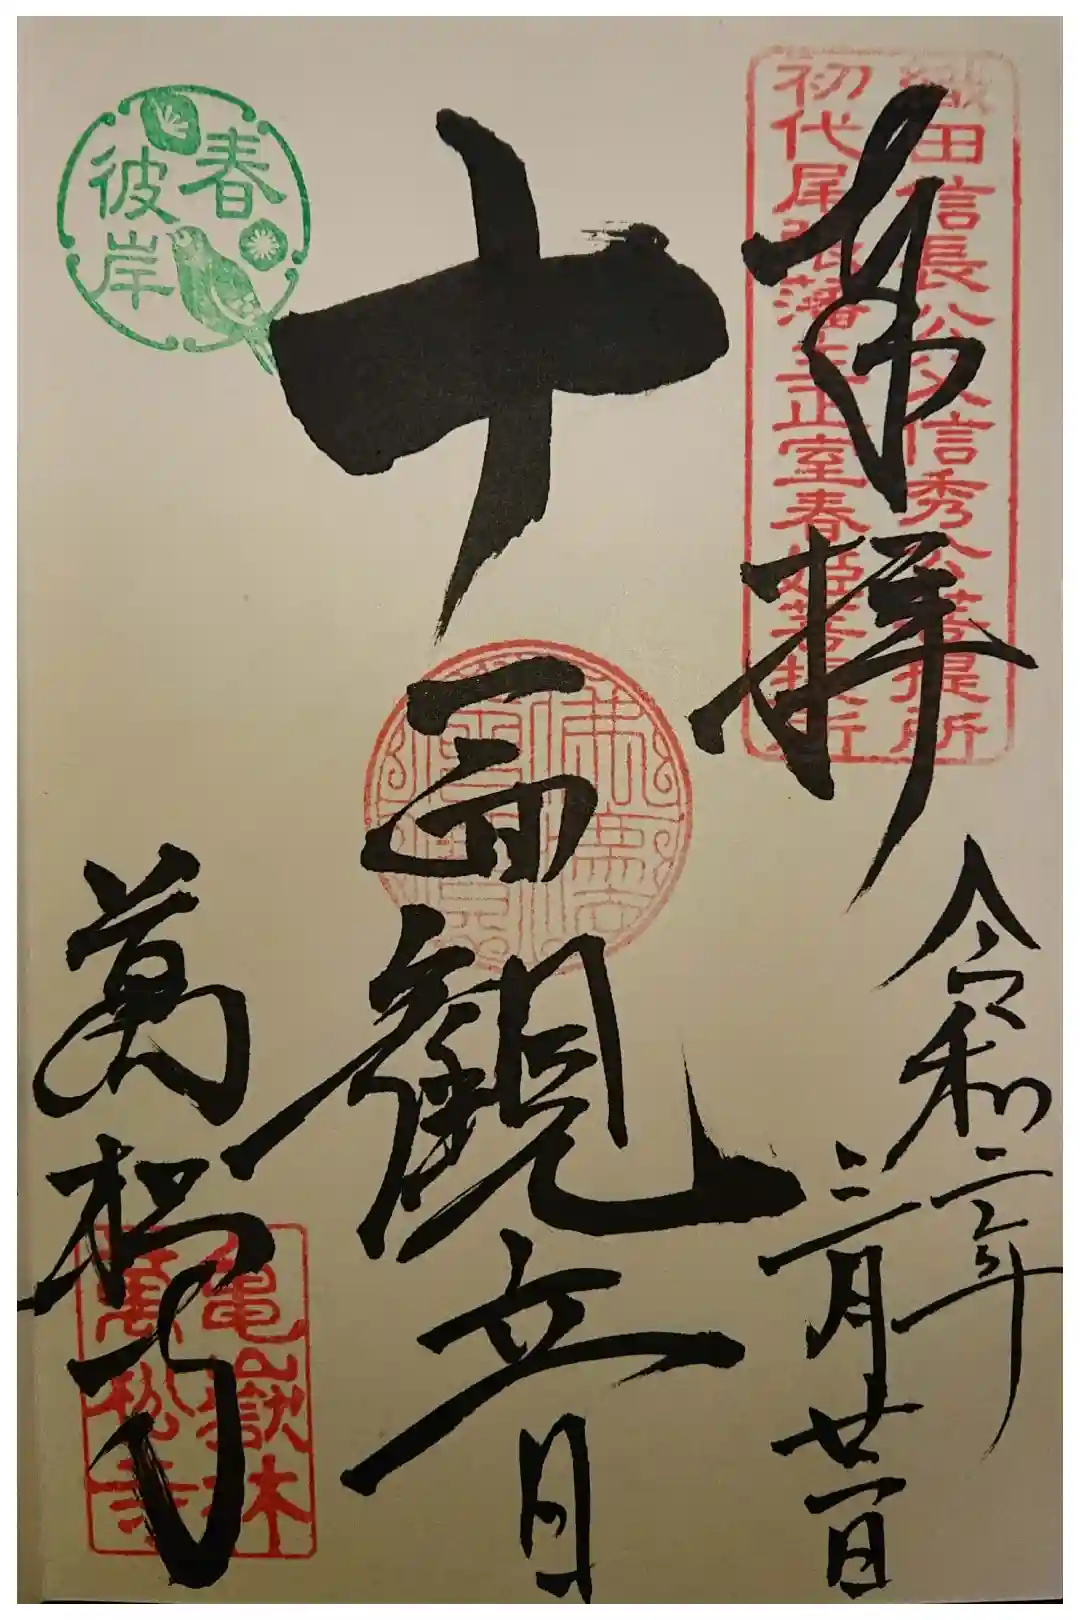 奉拝
織田信長公父信秀公菩提所
初代尾張藩主正室春姫菩提所
令和三年
三月廿一日
十一面観音
春
彼岸
萬松寺
亀嶽林
萬松寺